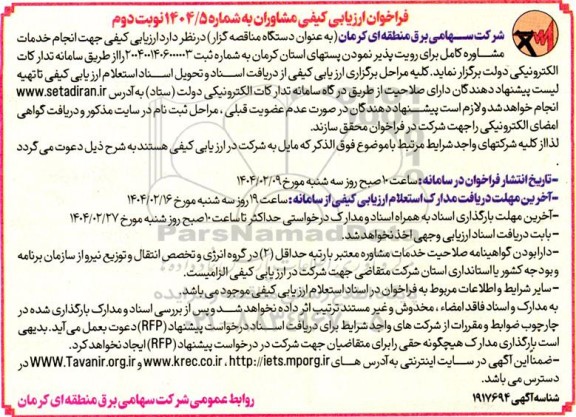 فراخوان ارزیابی کیفی مشاوران به شماره ۱۴۰۴/۵ نوبت دوم
شرکت سهامی برق منطقه ای کرمان (به عنوان دستگاه مناقصه گزار) درنظر دارد ارزیابی کیفی جهت انجام خدمات
مشاوره کامل برای رویت پذیر نمودن پستهای استان کرمان به شماره ثبت ۲۰۰۴۰۰۱۴۰۶۰۰۰۰۰۳ را از طریق سامانه تدارکات
الکترونیکی دولت برگزار نماید. کلیه مراحل برگزاری ارزیابی کیفی از دریافت اسناد و تحویل اسناد استعلام ارزیابی کیفی تا تهیه
لیست پیشنهاد دهندگان دارای صلاحیت از طریق درگاه سامانه تدارکات الکترونیکی دولت (ستاد) به آدرس www.setadiran.ir
انجام خواهد شد و لازم است پیشنهاد دهندگان در صورت عدم عضویت قبلی، مراحل ثبت نام در سایت مذکور و دریافت گواهی
امضای الکترونیکی را جهت شرکت در فراخوان محقق سازند.
لذا از کلیه شرکتهای واجد شرایط مرتبط با موضوع فوق الذکر که مایل به شرکت در ارزیابی کیفی هستند به شرح ذیل دعوت می گردد
.
-تاریخ انتشار فراخوان در سامانه: ساعت ۱۰ صبح روز سه شنبه مورخ ۱۴۰۴/۰۲/۰۹
-آخرین مهلت دریافت مدارک استعلام ارزیابی کیفی از سامانه: ساعت ۱۹ روز سه شنبه مورخ ۱۴۰۴/۰۲/۱۶
-آخرین مهلت بارگذاری اسناد به همراه اسناد و مدارک درخواستی حداکثر تا ساعت ۱۰ صبح روز شنبه مورخ ۱۴۰۴/۰۲/۲۷
-بابت دریافت اسناد ارزیابی وجهی اخذ نخواهد شد.
-دارا بودن گواهینامه صلاحیت خدمات مشاوره معتبر با رتبه حداقل (۲) در گروه انرژی و تخصص انتقال و توزیع نیرو از سازمان برنامه
و بودجه کشور یا استانداری استان شرکت متقاضی جهت شرکت در ارزیابی کیفی الزامیست.
-سایر شرایط و اطلاعات مربوط به فراخوان در اسناد استعلام ارزیابی کیفی موجود می باشد.
به مدارک و اسناد فاقد امضاء، مخدوش و غیر مستند ترتیب اثر داده نخواهد شد و پس از بررسی اسناد و مدارک بارگذاری شده در
چارچوب ضوابط و مقررات از شرکت های واجد شرایط برای دریافت اسناد درخواست پیشنهاد (RFP) دعوت بعمل می آید. بدیهی
است بارگذاری مدارک هیچگونه حقی را برای متقاضیان جهت شرکت در درخواست پیشنهاد (RFP) ایجاد نخواهد کرد.
-ضمنا این آگهی در سایت اینترنتی به آدرس های www.krec.co.ir ، http://iets.mporg.ir و WWW.Tavanir.org.ir در
دسترس می باشد.
شناسه آگهی ۱۹۱۷۶۹۴
روابط عمومی شرکت سهامی برق منطقه ای کرمان